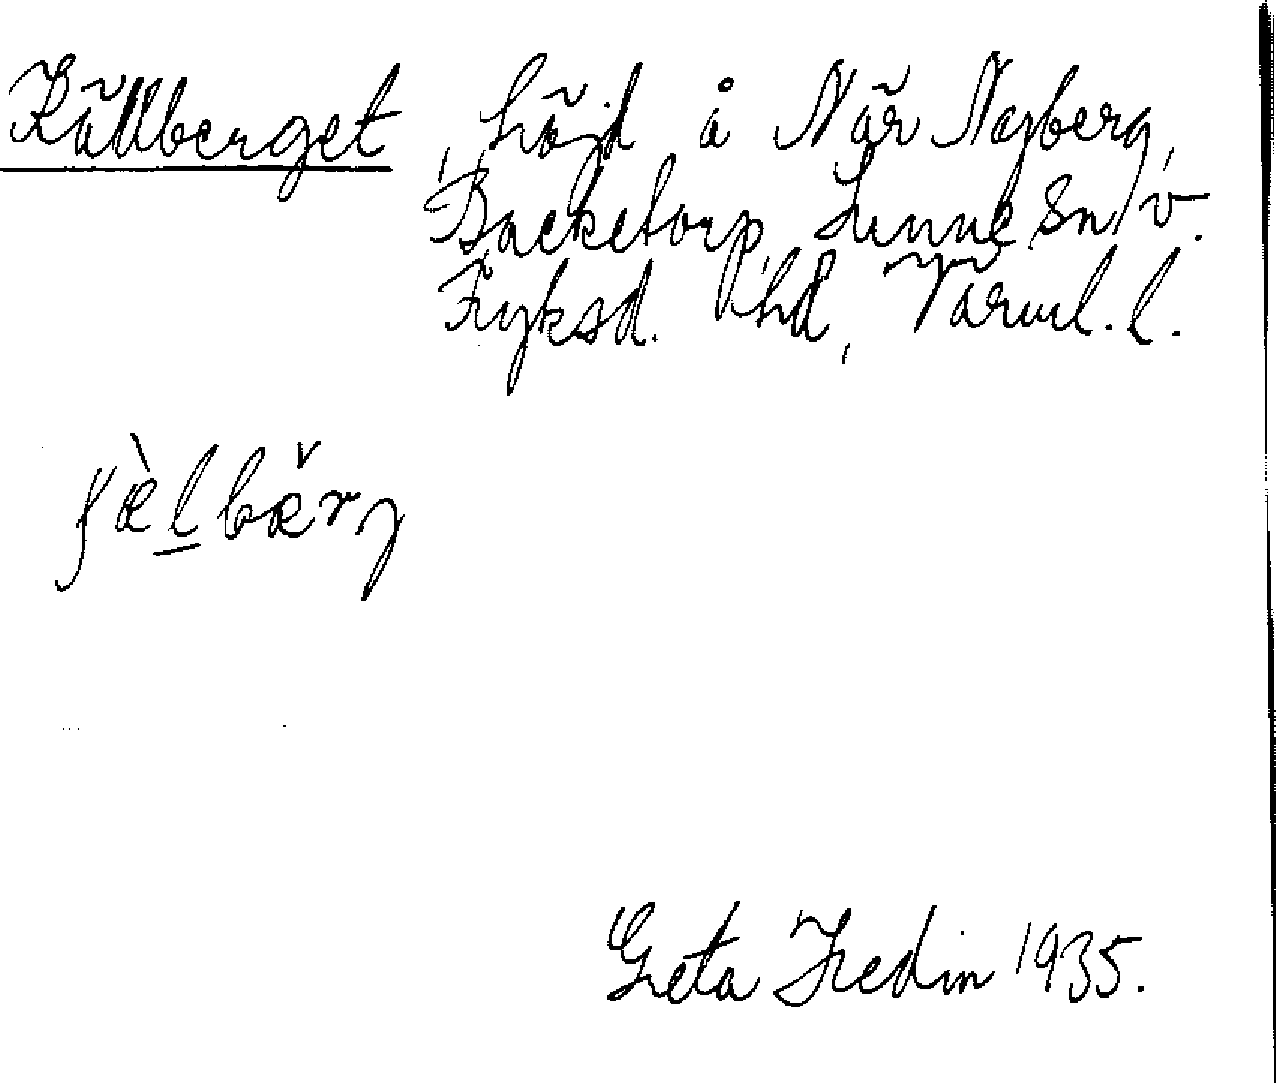 Källberget, höjd å När Nayberg,
Backetorp, Sunne sn, v.
Fryksd. hd, Värml. l.
Greta Hedin 1935.